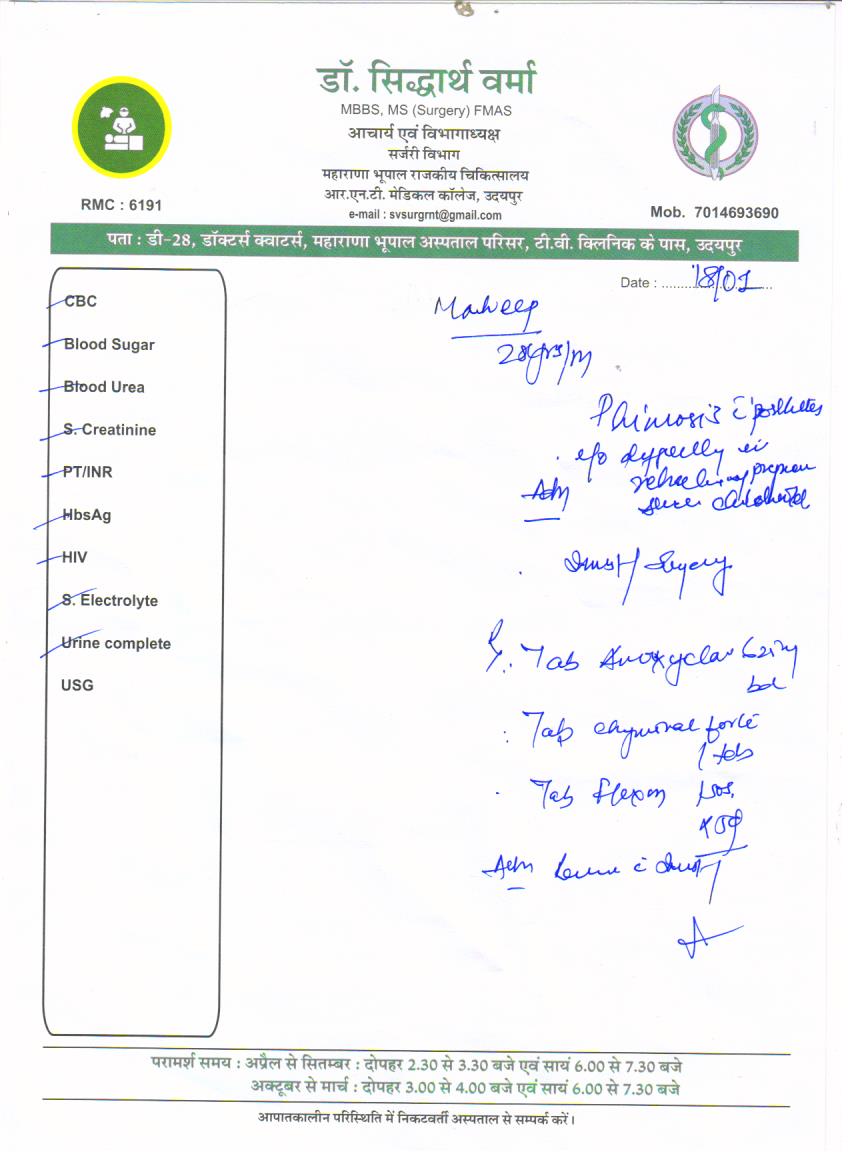 डॉ. सिद्धार्थ वर्मा
MBBS, MS (Surgery) FMAS
आचार्य एवं विभागाध्यक्ष
सर्जरी विभाग
महाराणा भूपाल राजकीय चिकित्सालय
आर.एन.टी. मेडिकल कॉलेज, उदयपुर
e-mail : svsurgrnt@gmail.com
RMC : 6191
Mob. 7014693690
पता : डी-28, डॉक्टर्स क्वाटर्स, महाराणा भूपाल अस्पताल परिसर, टी.वी. क्लिनिक के पास, उदयपुर
Date : 18/01
CBC
Blood Sugar
Blood Urea
S. Creatinine
PT/INR
HbsAg
HIV
S. Electrolyte
Urine complete
USG
28yrs/M
Phimosis c
c/o in
Adv
Surgery
Tab Amoxyclav 625mg
bd
Tab chymoral forte
1 tds
Tab Flexon sos
x 5d
Adv c
परामर्श समय : अप्रैल से सितम्बर : दोपहर 2.30 से 3.30 बजे एवं सायं 6.00 से 7.30 बजे
अक्टूबर से मार्च : दोपहर 3.00 से 4.00 बजे एवं सायं 6.00 से 7.30 बजे
आपातकालीन परिस्थिति में निकटवर्ती अस्पताल से सम्पर्क करें।